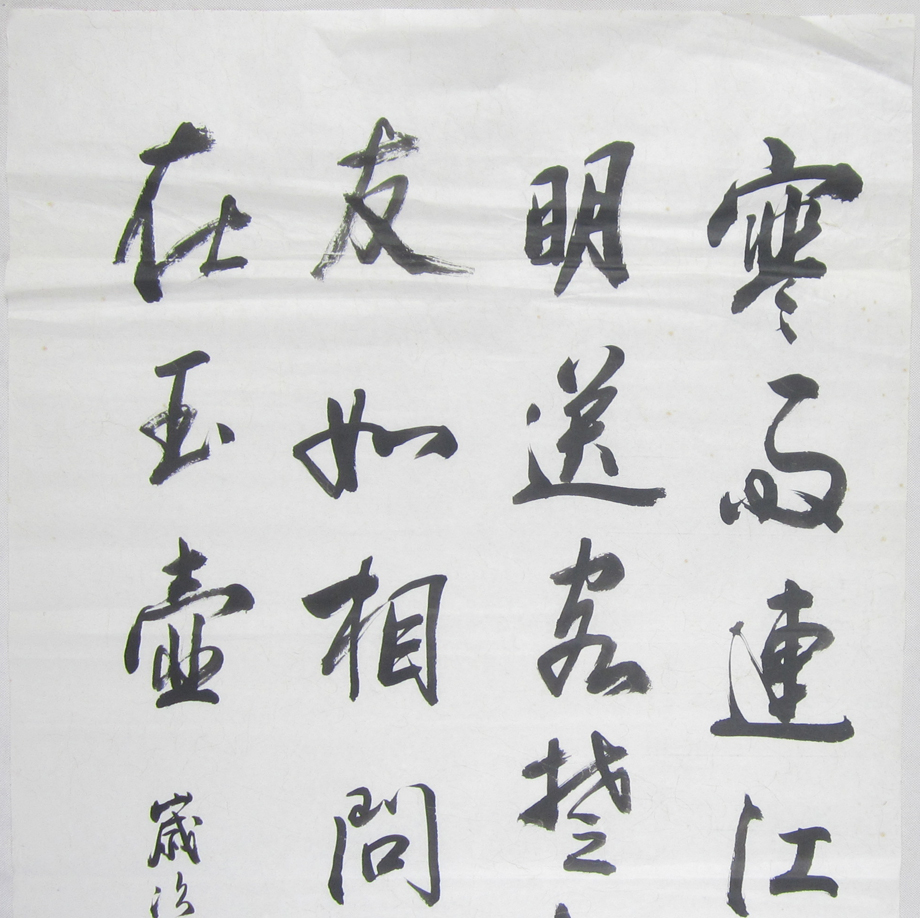 寒雨連江
明送客楚
友如相問
在玉壺
歳次